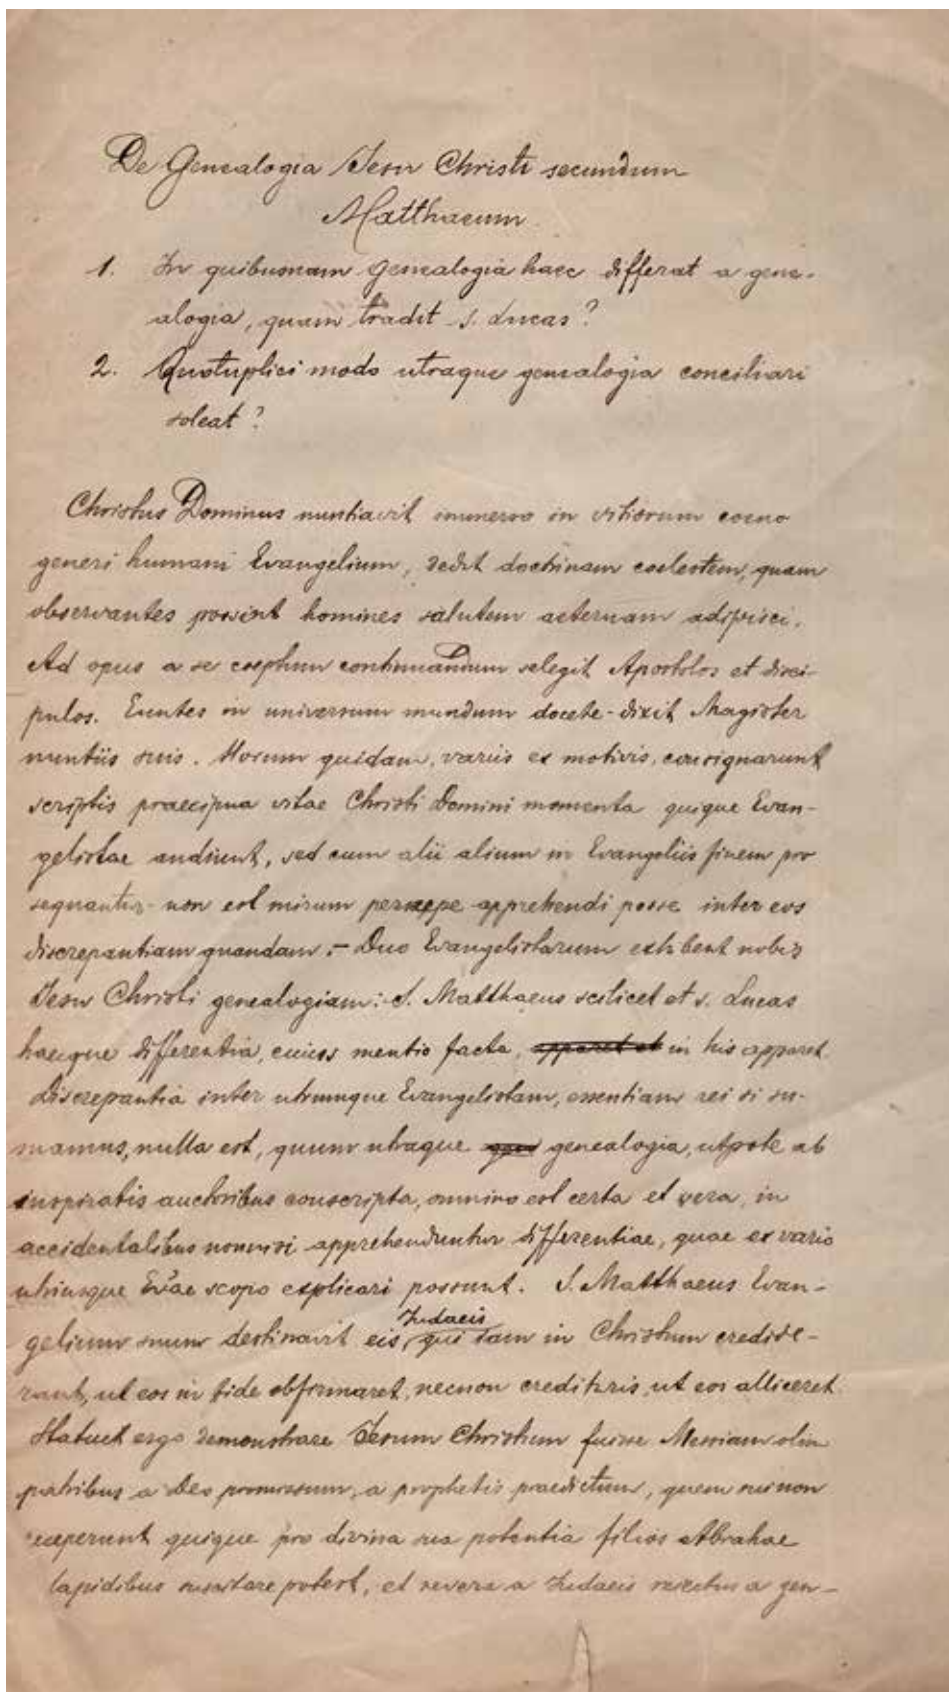 De Genealogia Jesu Christi secundum
Matthaeum
1. In quibusnam genealogia haec differat a gene-
alogia, quam tradit s. Lucas?
2. Quotuplici modo utraque genealogia conciliari
soleat?
Christus Dominus nuntiavit immerso in vitiorum coeno
generi humani Evangelium, dedit doctrinam coelestem, quam
observantes possint homines salutem aeternam adipisci.
Ad opus a se coeptum continuandum selegit Apostolos et disci-
pulos. Euntes in universum mundum docete - dixit Magister
nuntiis suis. Horum quidam, variis ex motivis, consignarunt
scriptis praecipua vitae Christi Domini momenta quique Evan-
gelistae audiunt, sed cum alii alium in Evangeliis finem pro
sequantur - non est mirum persaepe apprehendi posse inter eos
discrepantiam quandam. - Duo Evangelistarum exhibent nobis
Jesu Christi genealogiam: S. Matthaeus scilicet et s. Lucas
haecque differentia, cuius mentio facta, apparet et in his apparet.
Discrepantia inter utrumque Evangelistam, essentiam rei si su-
mamus, nulla est, quum utraque genealogia, utpote ab
inspiratis auctoribus conscripta, omnino est certa et vera, in
accidentalibus nonnisi apprehenduntur differentiae, quae ex vario
utriusque Evae scopo explicari possunt. S. Matthaeus Evan-
gelium suum destinavit eis, Judaeis qui iam in Christum credide-
rant, ut eos in fide obfirmaret, necnon credituris, ut eos alliceret.
Statuit ergo demonstrare Jesum Christum fuisse Messiam olim
patribus a Deo promissum, a prophetis praedictum, quem sui non
receperunt quique pro divina sua potentia filios Abrahae
lapidibus suscitare potest, et revera a Judaeis reiectus a gen-